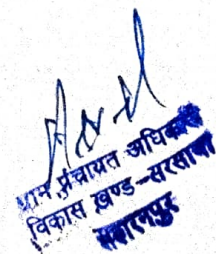 ग्राम पंचायत अधिकारी
विकास खण्ड-सरसावा
सहारनपुर